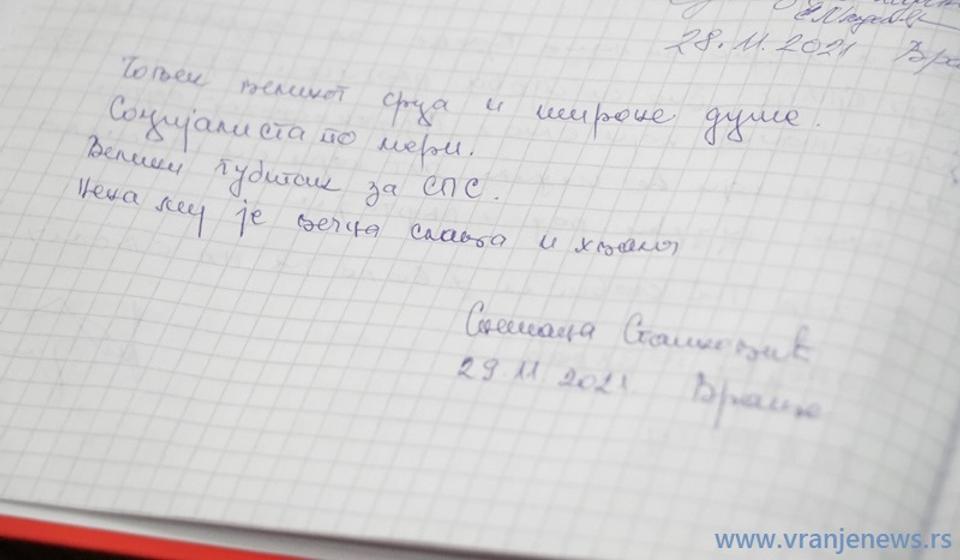 28.11.2021
Човек великог срца и широке душе.
Социјалиста по мери.
Велики губитак за СПС.
Нека му је вечна слава и хвала
Снежана Станковић
29.11.2021 Врање
www.vranjenews.rs